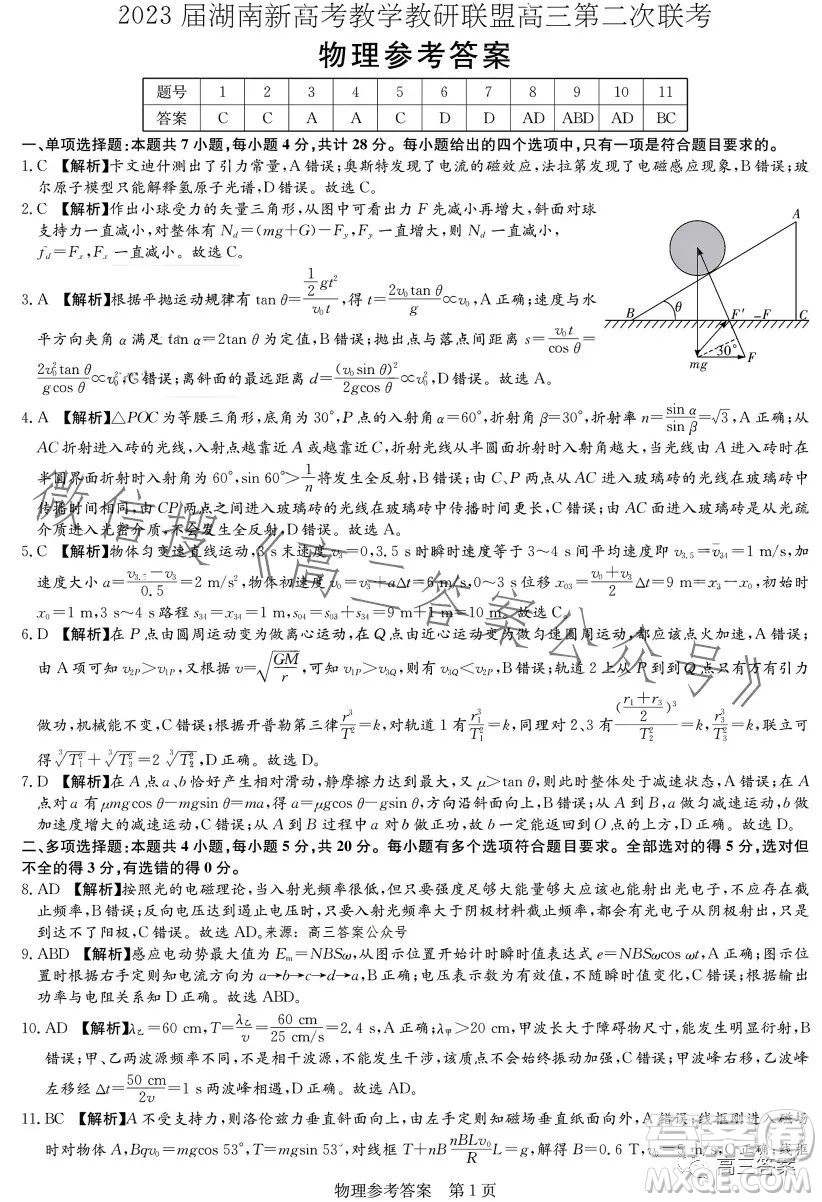 2023 届湖南新高考教学教研联盟高三第二次联考
物理参考答案
题号 1 2 3 4 5 6 7 8 9 10 11
答案 C C A A C D D AD ABD AD BC
一、单项选择题:本题共 7 小题,每小题 4 分,共计 28 分。每小题给出的四个选项中,只有一项是符合题目要求的。
1. C 【解析】卡文迪什测出了引力常量,A 错误;奥斯特发现了电流的磁效应,法拉第发现了电磁感应现象,B 错误;玻
尔原子模型只能解释氢原子光谱,D 错误。故选 C。
2. C 【解析】作出小球受力的矢量三角形,从图中可看出力 F 先减小再增大,斜面对球
支持力一直减小,对整体有 N_d=(mg+G)−F_y,F_y 一直增大,则 N_d 一直减小,
f_d=F_x,F_x 一直减小。故选 C。
A
B θ C
F′ −F
30°
mg F
3. A 【解析】根据平抛运动规律有 tan θ=(½gt²)/(v₀t),得 t=(2v₀tan θ)/g∝v₀,A 正确;速度与水
平方向夹角 α 满足 tan α=2tan θ 为定值,B 错误;抛出点与落点间距离 s=(v₀t)/(cos θ)=
(2v₀²tan θ)/(gcos θ)∝v₀²,C 错误;离斜面的最远距离 d=(v₀sin θ)²/(2gcos θ)∝v₀²,D 错误。故选 A。
4. A 【解析】△POC 为等腰三角形,底角为 30°,P 点的入射角 α=60°,折射角 β=30°,折射率 n=(sin α)/(sin β)=√3,A 正确;从
AC 折射进入砖的光线,入射点越靠近 A 或越靠近 C,折射光线从半圆面折射时入射角越大,当光线由 A 进入砖时在
半圆界面折射时入射角为 60°,sin 60°>1/n 将发生全反射,B 错误;由 C、P 两点从 AC 进入玻璃砖的光线在玻璃砖中
传播时间相同,由 CP 两点之间进入玻璃砖的光线在玻璃砖中传播时间更长,C 错误;由 AC 面进入玻璃砖是从光疏
介质进入光密介质,不会发生全反射,D 错误。故选 A。
5. C 【解析】物体匀变速直线运动,3 s 末速度 v₃=0,3.5 s 时瞬时速度等于 3~4 s 间平均速度即 v₃.₅=v̄₃₄=1 m/s,加
速度大小 a=(v₃.₅−v₃)/0.5=2 m/s²,物体初速度 v₀=v₃+aΔt=6 m/s,0~3 s 位移 x₀₃=(v₀+v₃)/2 Δt=9 m=x₃−x₀,初始时
x₀=1 m,3 s~4 s 路程 s₃₄=x₃₄=1 m,s₀₄=s₀₃+s₃₄=9 m+1 m=10 m。故选 C。
6. D 【解析】在 P 点由圆周运动变为做离心运动,在 Q 点由近心运动变为做匀速圆周运动,都应该点火加速,A 错误;
由 A 项可知 v₂P>v₁P,又根据 v=√(GM/r),可知 v₁P>v₃Q,则有 v₃Q<v₂P,B 错误;轨道 2 上从 P 到 Q 点只有万有引力
做功,机械能不变,C 错误;根据开普勒第三律 r³/T²=k,对轨道 1 有 r₁³/T₁²=k,同理对 2、3 有 ((r₁+r₃)/2)³/T₂²=k,r₃³/T₃²=k,联立可
得 ∛(T₁²)+∛(T₃²)=2∛(T₂²),D 正确。故选 D。
7. D 【解析】在 A 点 a、b 恰好产生相对滑动,静摩擦力达到最大,又 μ>tan θ,则此时整体处于减速状态,A 错误;在 A
点对 a 有 μmgcos θ−mgsin θ=ma,得 a=μgcos θ−gsin θ,方向沿斜面向上,B 错误;从 A 到 B,a 做匀减速运动,b 做
加速度增大的减速运动,C 错误;从 A 到 B 过程中 a 对 b 做正功,故 b 一定能返回到 O 点的上方,D 正确。故选 D。
二、多项选择题:本题共 4 小题,每小题 5 分,共 20 分。每小题有多个选项符合题目要求。全部选对的得 5 分,选对但
不全的得 3 分,有选错的得 0 分。
8. AD 【解析】按照光的电磁理论,当入射光频率很低,但只要强度足够大能量足够大应该也能发生光电效应,不应存在截
止频率,B 错误;反向电压达到遏止电压时,只要入射光频率大于阴极材料截止频率,都会有光电子从阴极飞出,只是
到达不了阳极,C 错误。来源:高三答案公众号
9. ABD 【解析】感应电动势最大值为 E_m=NBSω,从图示位置开始计时瞬时值表达式 e=NBSωcos ωt,A 正确;图示位
置根据右手定则知电流方向为 a→b→c→d→a,B 正确;电压表示数为有效值,不随线圈位置变化,C 错误;根据输出
功率与电阻关系,D 正确。故选 ABD。
10. AD 【解析】λ乙=60 cm,T=λ乙/v=(60 cm)/(25 cm/s)=2.4 s,A 正确;λ甲>20 cm,甲波长大于障碍物尺寸,能发生明显衍射,B
错误;甲、乙两波源频率不同,是不相干波源,不能发生干涉,该质点不会始终振动加强,C 错误;甲波峰右移,乙波峰
左移经 Δt=(50 cm)/(2v)=1 s 两波峰相遇,D 正确。故选 AD。
11. BC 【解析】A 不受支持力,则洛伦兹力垂直斜面向上,由左手定则知磁场垂直纸面向外,A 错误;线框刚进入磁场
时对物体 A,Bqv₀=mgcos 53°,T=mgsin 53°,对线框 T+nB(nBLv₀/R)L=g,解得 B=0.6 T,v₀=5 m/s,B 正确;线框
物理参考答案 第 1 页
微信搜《高三答案公众号》
高三答案